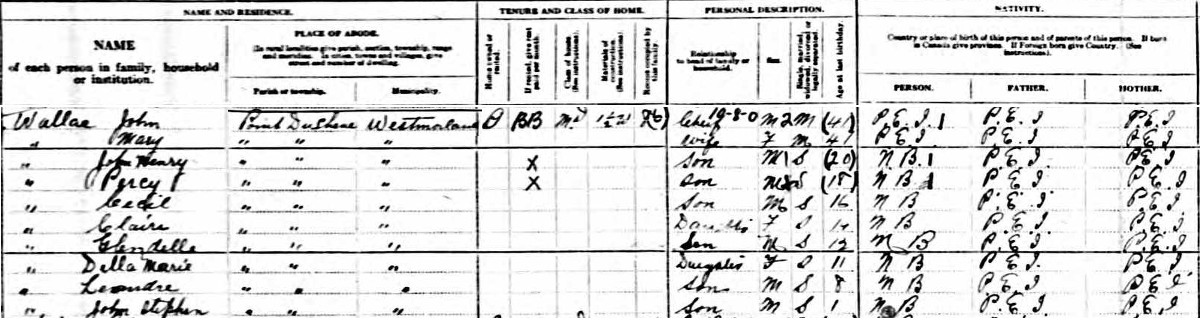 NAME AND RESIDENCE. TENURE AND CLASS OF HOME. PERSONAL DESCRIPTION. NATIVITY.
NAME of each person in family, household or institution.
PLACE OF ABODE. (In rural localities give parish, section, township, range and meridian. In cities, towns and villages, give street and number of dwelling.
Parish or township. Municipality.
Home owned or rented. If rented, give rent paid per month. Class of house (See instructions). Materials of construction (See instructions). Rooms occupied by this family.
Relationship to head of family or household. Sex. Single, married, widowed, divorced or legally separated. Age at last birthday.
Country or place of birth of this person and of parents of this person. If born in Canada give province. If Foreign born give Country. (See instructions).
PERSON. FATHER. MOTHER.
John Westmorland O BB M (41) P.E.I. 1 P.E.I. P.E.I
" Mary " " " wife F M 41 P.E.I P.E.I. P.E.I
" John Henry " " " X son M S (20) N B. 1 P.E.I. P.E.I
" Percy " " " X son M S (18) N B 1 P.E.I. P.E.I.
" Cecil " " " son M S 16 N B P.E.I. P.E.I.
" Claire " " " F S 14 N B P.E.I. P.E.I
" Glendella " " " Son M S 12 N B P.E.I. P.E.I.
" Della Marie " " " F S 11 N B P.E.I. P.E.I.
" Leandre " " " son M S 8 N B P.E.I. P.E.I
" John Stephen " " " son M S 1 N B P.E.I. P.E.I.